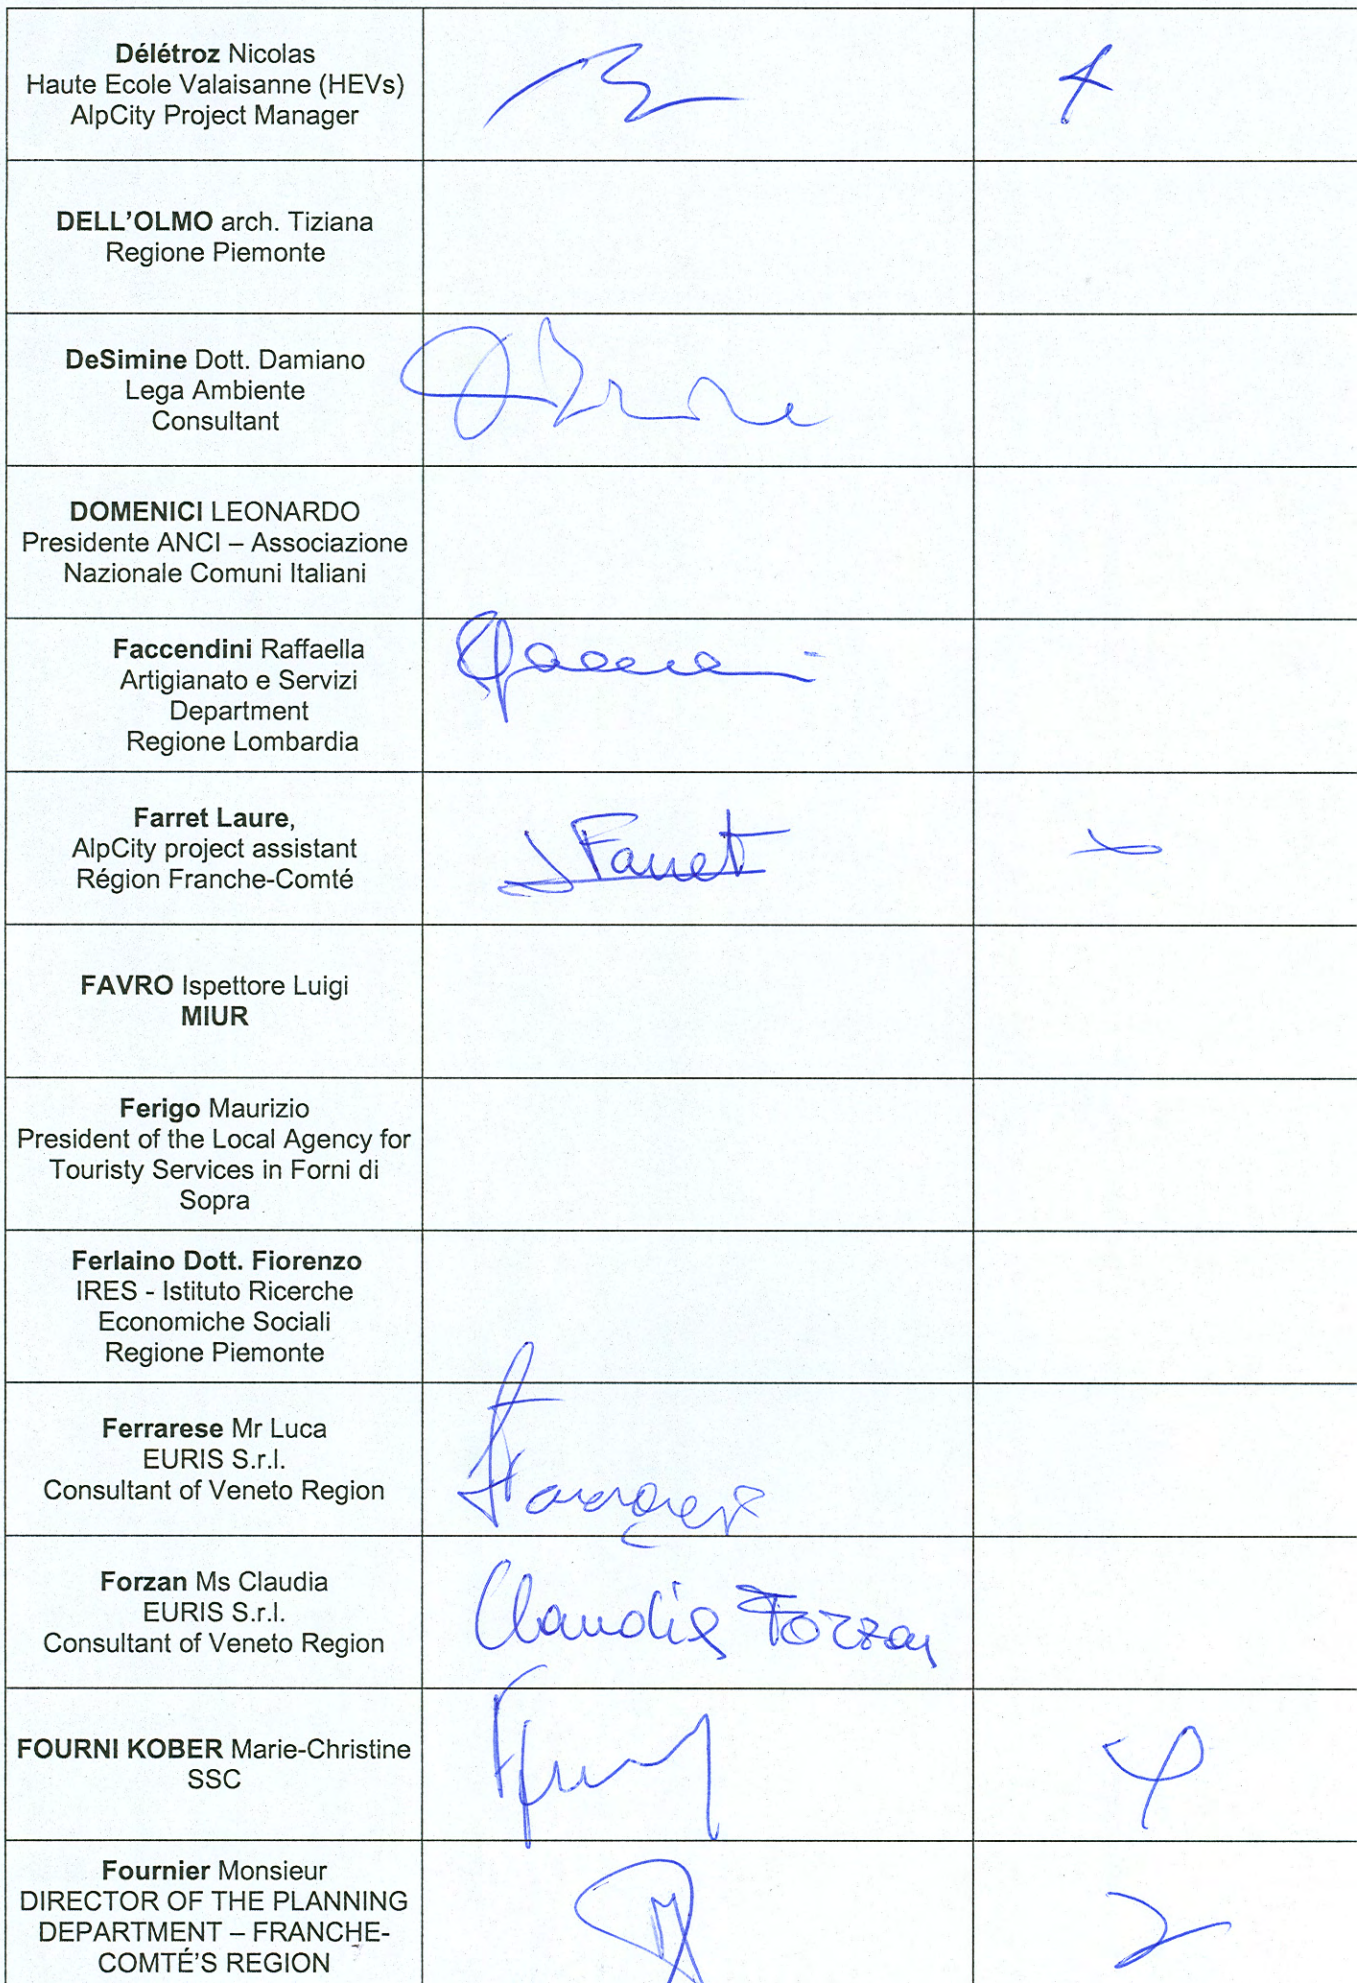 Délétroz Nicolas
Haute Ecole Valaisanne (HEVs)
AlpCity Project Manager
DELL'OLMO arch. Tiziana
Regione Piemonte
DeSimine Dott. Damiano
Lega Ambiente
Consultant
DOMENICI LEONARDO
Presidente ANCI – Associazione
Nazionale Comuni Italiani
Faccendini Raffaella
Artigianato e Servizi
Department
Regione Lombardia
Farret Laure,
AlpCity project assistant
Région Franche-Comté
Farret
FAVRO Ispettore Luigi
MIUR
Ferigo Maurizio
President of the Local Agency for
Touristy Services in Forni di
Sopra
Ferlaino Dott. Fiorenzo
IRES - Istituto Ricerche
Economiche Sociali
Regione Piemonte
Ferrarese Mr Luca
EURIS S.r.l.
Consultant of Veneto Region
Forzan Ms Claudia
EURIS S.r.l.
Consultant of Veneto Region
Claudia Forzan
FOURNI KOBER Marie-Christine
SSC
Fournier Monsieur
DIRECTOR OF THE PLANNING
DEPARTMENT – FRANCHE-
COMTÉ'S REGION